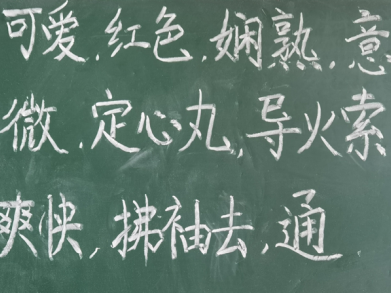 可爱,红色,娴熟,意
微,定心丸,导火索
爽快,拂袖去,通